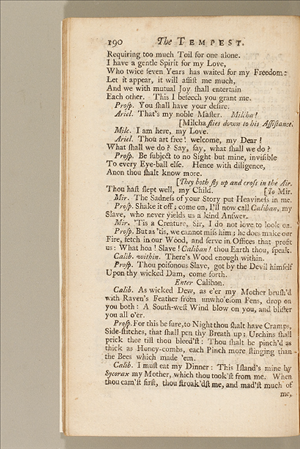 190 The TEMPEST.
Requiring too much Toil for one alone.
I have a gentle Spirit for my Love,
Who twice seven Years has waited for my Freedom:
Let it appear, it will assist me much,
And we with mutual Joy shall entertain
Each other. This I beseech you grant me.
Prosp. You shall have your desire.
Ariel. That's my noble Master. Milcha!
[Milcha flies down to his Assistance.
Milc. I am here, my Love.
Ariel. Thou art free! welcome, my Dear!
What shall we do? Say, say, what shall we do?
Prosp. Be subject to no Sight but mine, invisible
To every Eye-ball else. Hence with diligence,
Anon thou shalt know more.
[They both fly up and cross in the Air.
Thou hast slept well, my Child. [To Mir.
Mir. The Sadness of your Story put Heaviness in me.
Prosp. Shake it off; come on, I'll now call Caliban, my
Slave, who never yields us a kind Answer.
Mir. 'Tis a Creature, Sir, I do not love to look on.
Prosp. But as 'tis, we cannot miss him; he does make our
Fire, fetch in our Wood, and serve in Offices that profit
us: What hoa! Slave! Caliban! thou Earth thou, speak.
Calib. within. There's Wood enough within.
Prosp. Thou poisonous Slave, got by the Devil himself
Upon thy wicked Dam, come forth.
Enter Caliban.
Calib. As wicked Dew, as e'er my Mother brush'd
with Raven's Feather from unwholsom Fens, drop on
you both: A South-west Wind blow on you, and blister
you all o'er.
Prosp. For this be sure, to Night thou shalt have Cramps,
Side-stitches, that shall pen thy Breath up; Urchins shall
prick thee till thou bleed'st: Thou shalt be pinch'd as
thick as Honey-combs, each Pinch more stinging than
the Bees which made 'em.
Calib. I must eat my Dinner: This Island's mine by
Sycorax my Mother, which thou took'st from me. When
thou cam'st first, thou stroak'dst me, and mad'st much of
me,